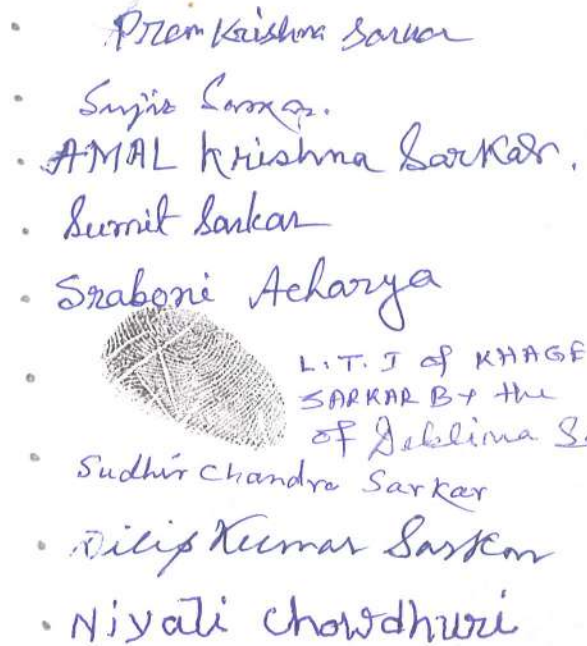 Prem Krishna Sarkar
Sujit Sarkar.
AMAL Krishna Sarkar.
Sumit Sarkar
Sraboni Acharya
L.T.I of KHAGE
SARKAR By the
of Deblina S
Sudhir Chandra Sarkar
Dilip Kumar Sarkar
Niyati Chowdhuri